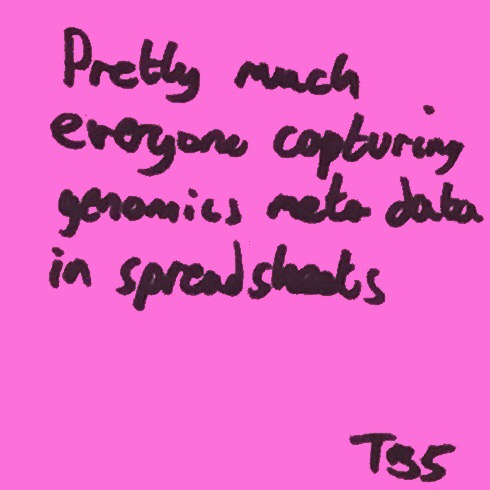 Pretty much
everyone capturing
genomics meta data
in spreadsheets
T35